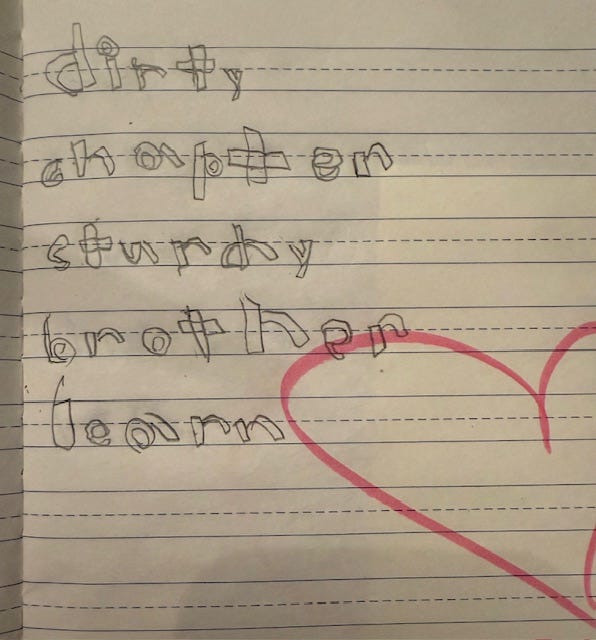 dirty
chapter
sturdy
brother
learn